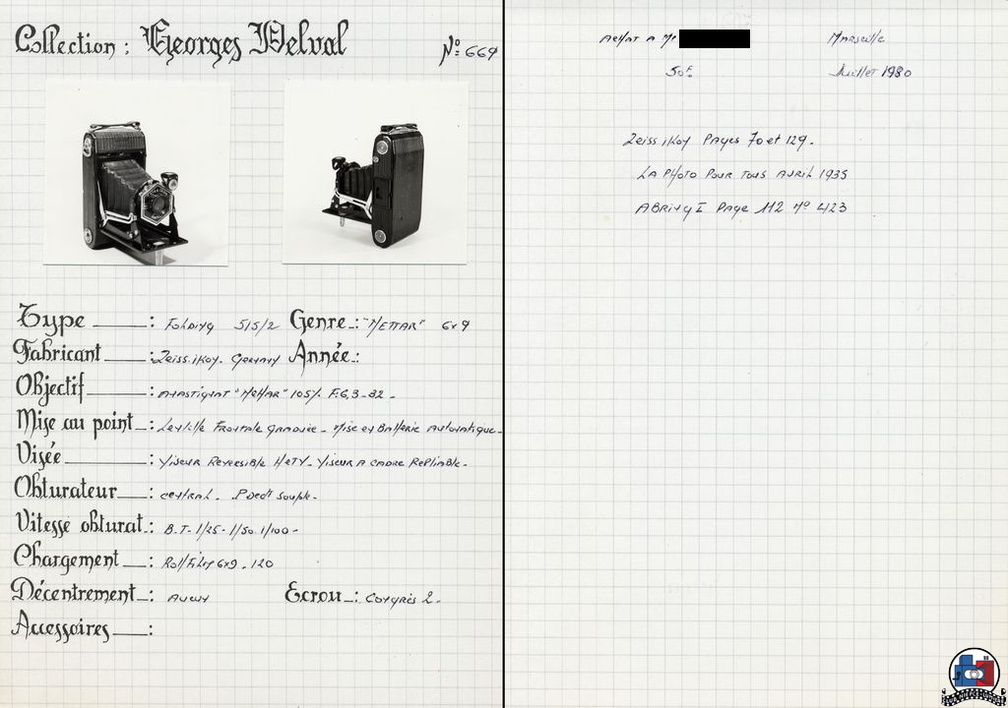 Collection : Georges Delval Nº 669
Type : Folding 515/2 Genre : "NETTAR" 6x9
Fabricant : Zeiss.ikon. Germany Année :
Objectif : Anastigmat "Nettar" 105%. F:6,3-32 -
Mise au point : Lentille Frontale graduée - Mise en Batterie Automatique -
Visée : Viseur Reversible Viseur A cadre Repliable -
Obturateur : central - souple -
Vitesse obturat. : B.T- 1/25- 1/50. 1/100 -
Chargement : Rollfilm 6x9 - 120
Décentrement : Aucun Ecrou : Congrès 2 -
Accessoires :
Achat A Mr Marseille
50F Juillet 1980
Zeiss ikon Pages 70 et 129 .
LA PHOTO POUR TOUS AVRIL 1935
ABRING I Page 112 Nº 423